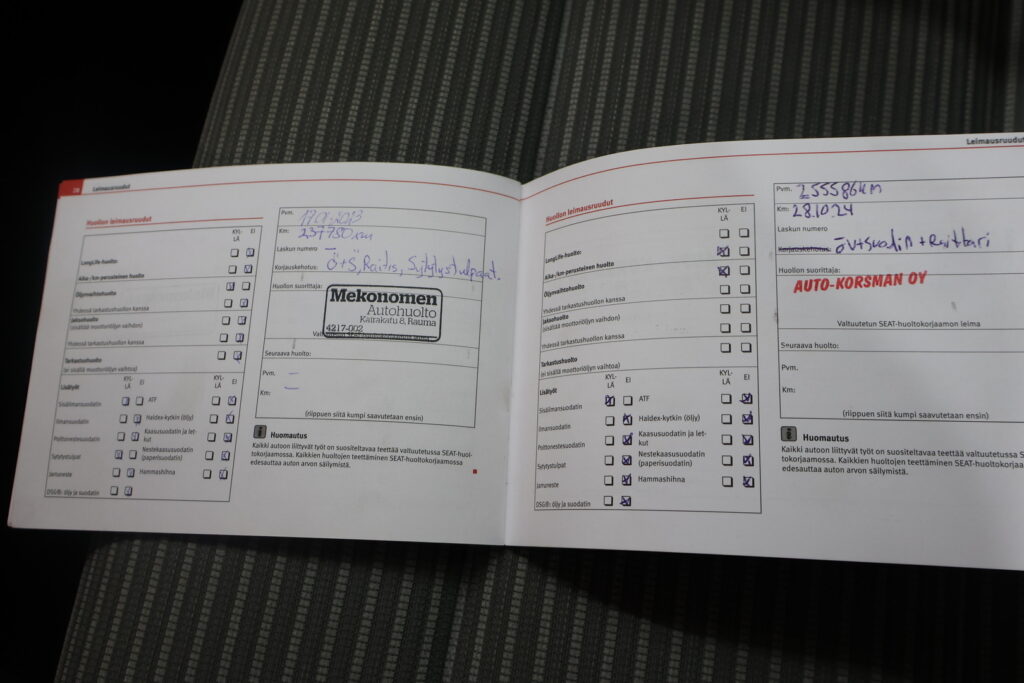 28 Leimausruudut
Huollon leimausruudut
KYL-
LÄ
EI
LongLife-huolto:
Aika-/km-perusteinen huolto
Öljynvaihtohuolto
Yhdessä tarkastushuollon kanssa
Jaksohuolto
(sisältää moottoriöljyn vaihdon)
Yhdessä tarkastushuollon kanssa
Tarkastushuolto
(ei sisällä moottoriöljyn vaihtoa)
Lisätyöt
KYL-
LÄ
EI
KYL-
LÄ
EI
Sisäilmansuodatin
ATF
Ilmansuodatin
Haldex-kytkin (öljy)
Polttonestesuodatin
Kaasusuodatin ja let-
kut
Sytytystulpat
Nestekaasusuodatin
(paperisuodatin)
Jarruneste
Hammashihna
DSG®: öljy ja suodatin
Pvm.
Km: 237780 km
Laskun numero –
Korjauskehotus: Ö+S, Raitis, Sytytystulpat.
Huollon suorittaja:
Mekonomen
Autohuolto
Kairakatu 8, Rauma
4217-002
Seuraava huolto:
Pvm. –
Km: –
(riippuen siitä kumpi saavutetaan ensin)
Huomautus
Kaikki autoon liittyvät työt on suositeltavaa teettää valtuutetussa SEAT-huol-
tokorjaamossa. Kaikkien huoltojen teettäminen SEAT-huoltokorjaamossa
edesauttaa auton arvon säilymistä.
Leimausruudut
Huollon leimausruudut
KYL-
LÄ
EI
LongLife-huolto:
Aika-/km-perusteinen huolto
Öljynvaihtohuolto
Yhdessä tarkastushuollon kanssa
Jaksohuolto
(sisältää moottoriöljyn vaihdon)
Yhdessä tarkastushuollon kanssa
Tarkastushuolto
(ei sisällä moottoriöljyn vaihtoa)
Lisätyöt
KYL-
LÄ
EI
KYL-
LÄ
EI
Sisäilmansuodatin
ATF
Ilmansuodatin
Haldex-kytkin (öljy)
Polttonestesuodatin
Kaasusuodatin ja let-
kut
Sytytystulpat
Nestekaasusuodatin
(paperisuodatin)
Jarruneste
Hammashihna
DSG®: öljy ja suodatin
Pvm. 255586KM
Km: 28.10.24
Laskun numero
Korjauskehotus: ÖV+Suodin+Raitbari
Huollon suorittaja:
AUTO-KORSMAN OY
Valtuutetun SEAT-huoltokorjaamon leima
Seuraava huolto:
Pvm.
Km:
(riippuen siitä kumpi saavutetaan ensin)
Huomautus
Kaikki autoon liittyvät työt on suositeltavaa teettää valtuutetussa SEAT-huol-
tokorjaamossa. Kaikkien huoltojen teettäminen SEAT-huoltokorjaamossa
edesauttaa auton arvon säilymistä.